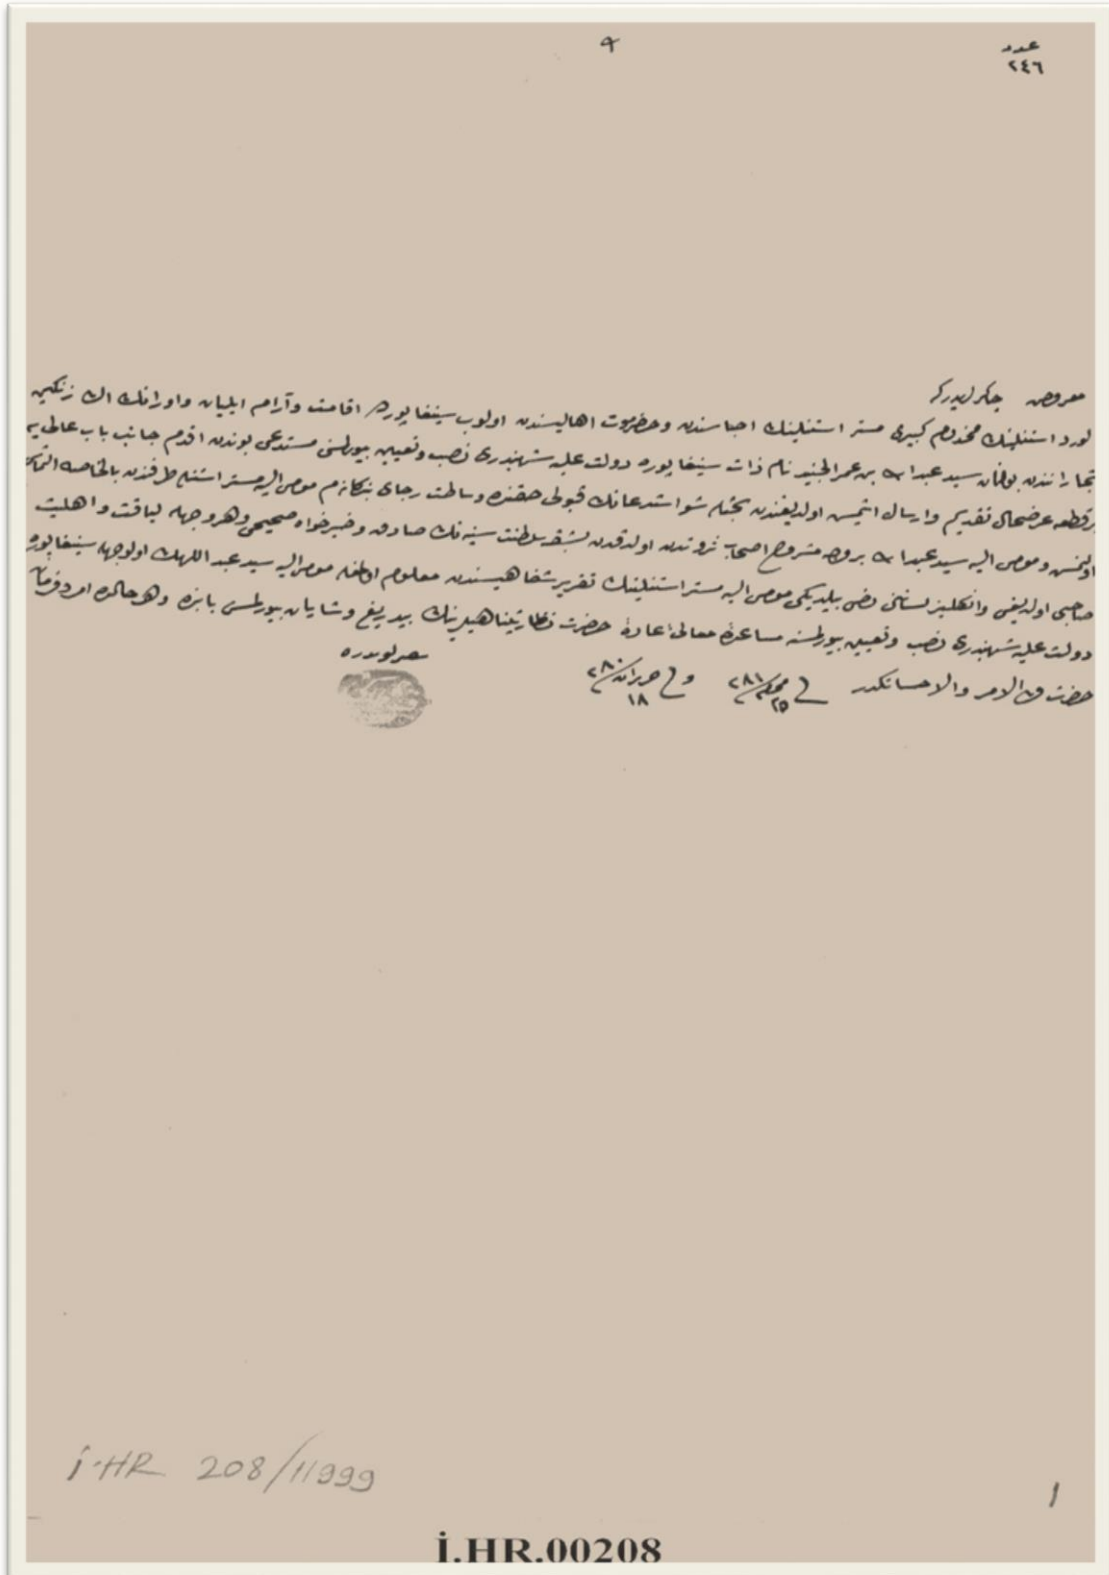 عدد
٢٤٦
٩
معروض چاكرلريدركه
لورد استنلينك مخدوم كبيرى مستر استنلينك احباسندن وحضرموت اهاليسندن اولوب سينغاپورده اقامت وآرام ايليان واورانك اك زنكين
تجارانندن بولنان سيد عبد الله بن عمر الجنيد نام ذات سينغاپوره دولت عليه شهبندرى نصب وتعيين بيورلمسنى مستدعى بوندن اقدم جانب باب عالى يه
بر قطعه عرضحال تقديم وارسال اتمش اولديغندن بحثله شو استدعانك قبولى حقنده وساطت رجاى بندكانه م مومى اليه مستر استنلى طرفندن بالخاصه التماس
اولنمش ومومى اليه سيد عبد الله بروجه مشروح اصحاب ثروتدن اولدقدن بشقه سلطنت سنيه نك صادق وخيرخواه صحيحى وهر وجهله لياقت واهليت
صاحبى اولديغى وانكليز لسانى دخى بيلديكى مومى اليه مستر استنلينك تقرير شفاهيسندن معلوم اولمغله مومى اليه سيد عبد اللهك اولوجهله سينغاپوره
دولت عليه شهبندرى نصب وتعيين بيورلمسنه مساعده معالىء عاده حضرت نظارتپناهيلرينك بيدريغ وشايان بيورلمسى بابنده وهر حالده امر وفرمان
حضرت من له الامر والاحسانكدر فى ٢٥ محرم ٢٨١ وفى ١٨ حزيران ٢٨٠
سفير لوندره
İ.HR 208/11999
1
İ.HR.00208